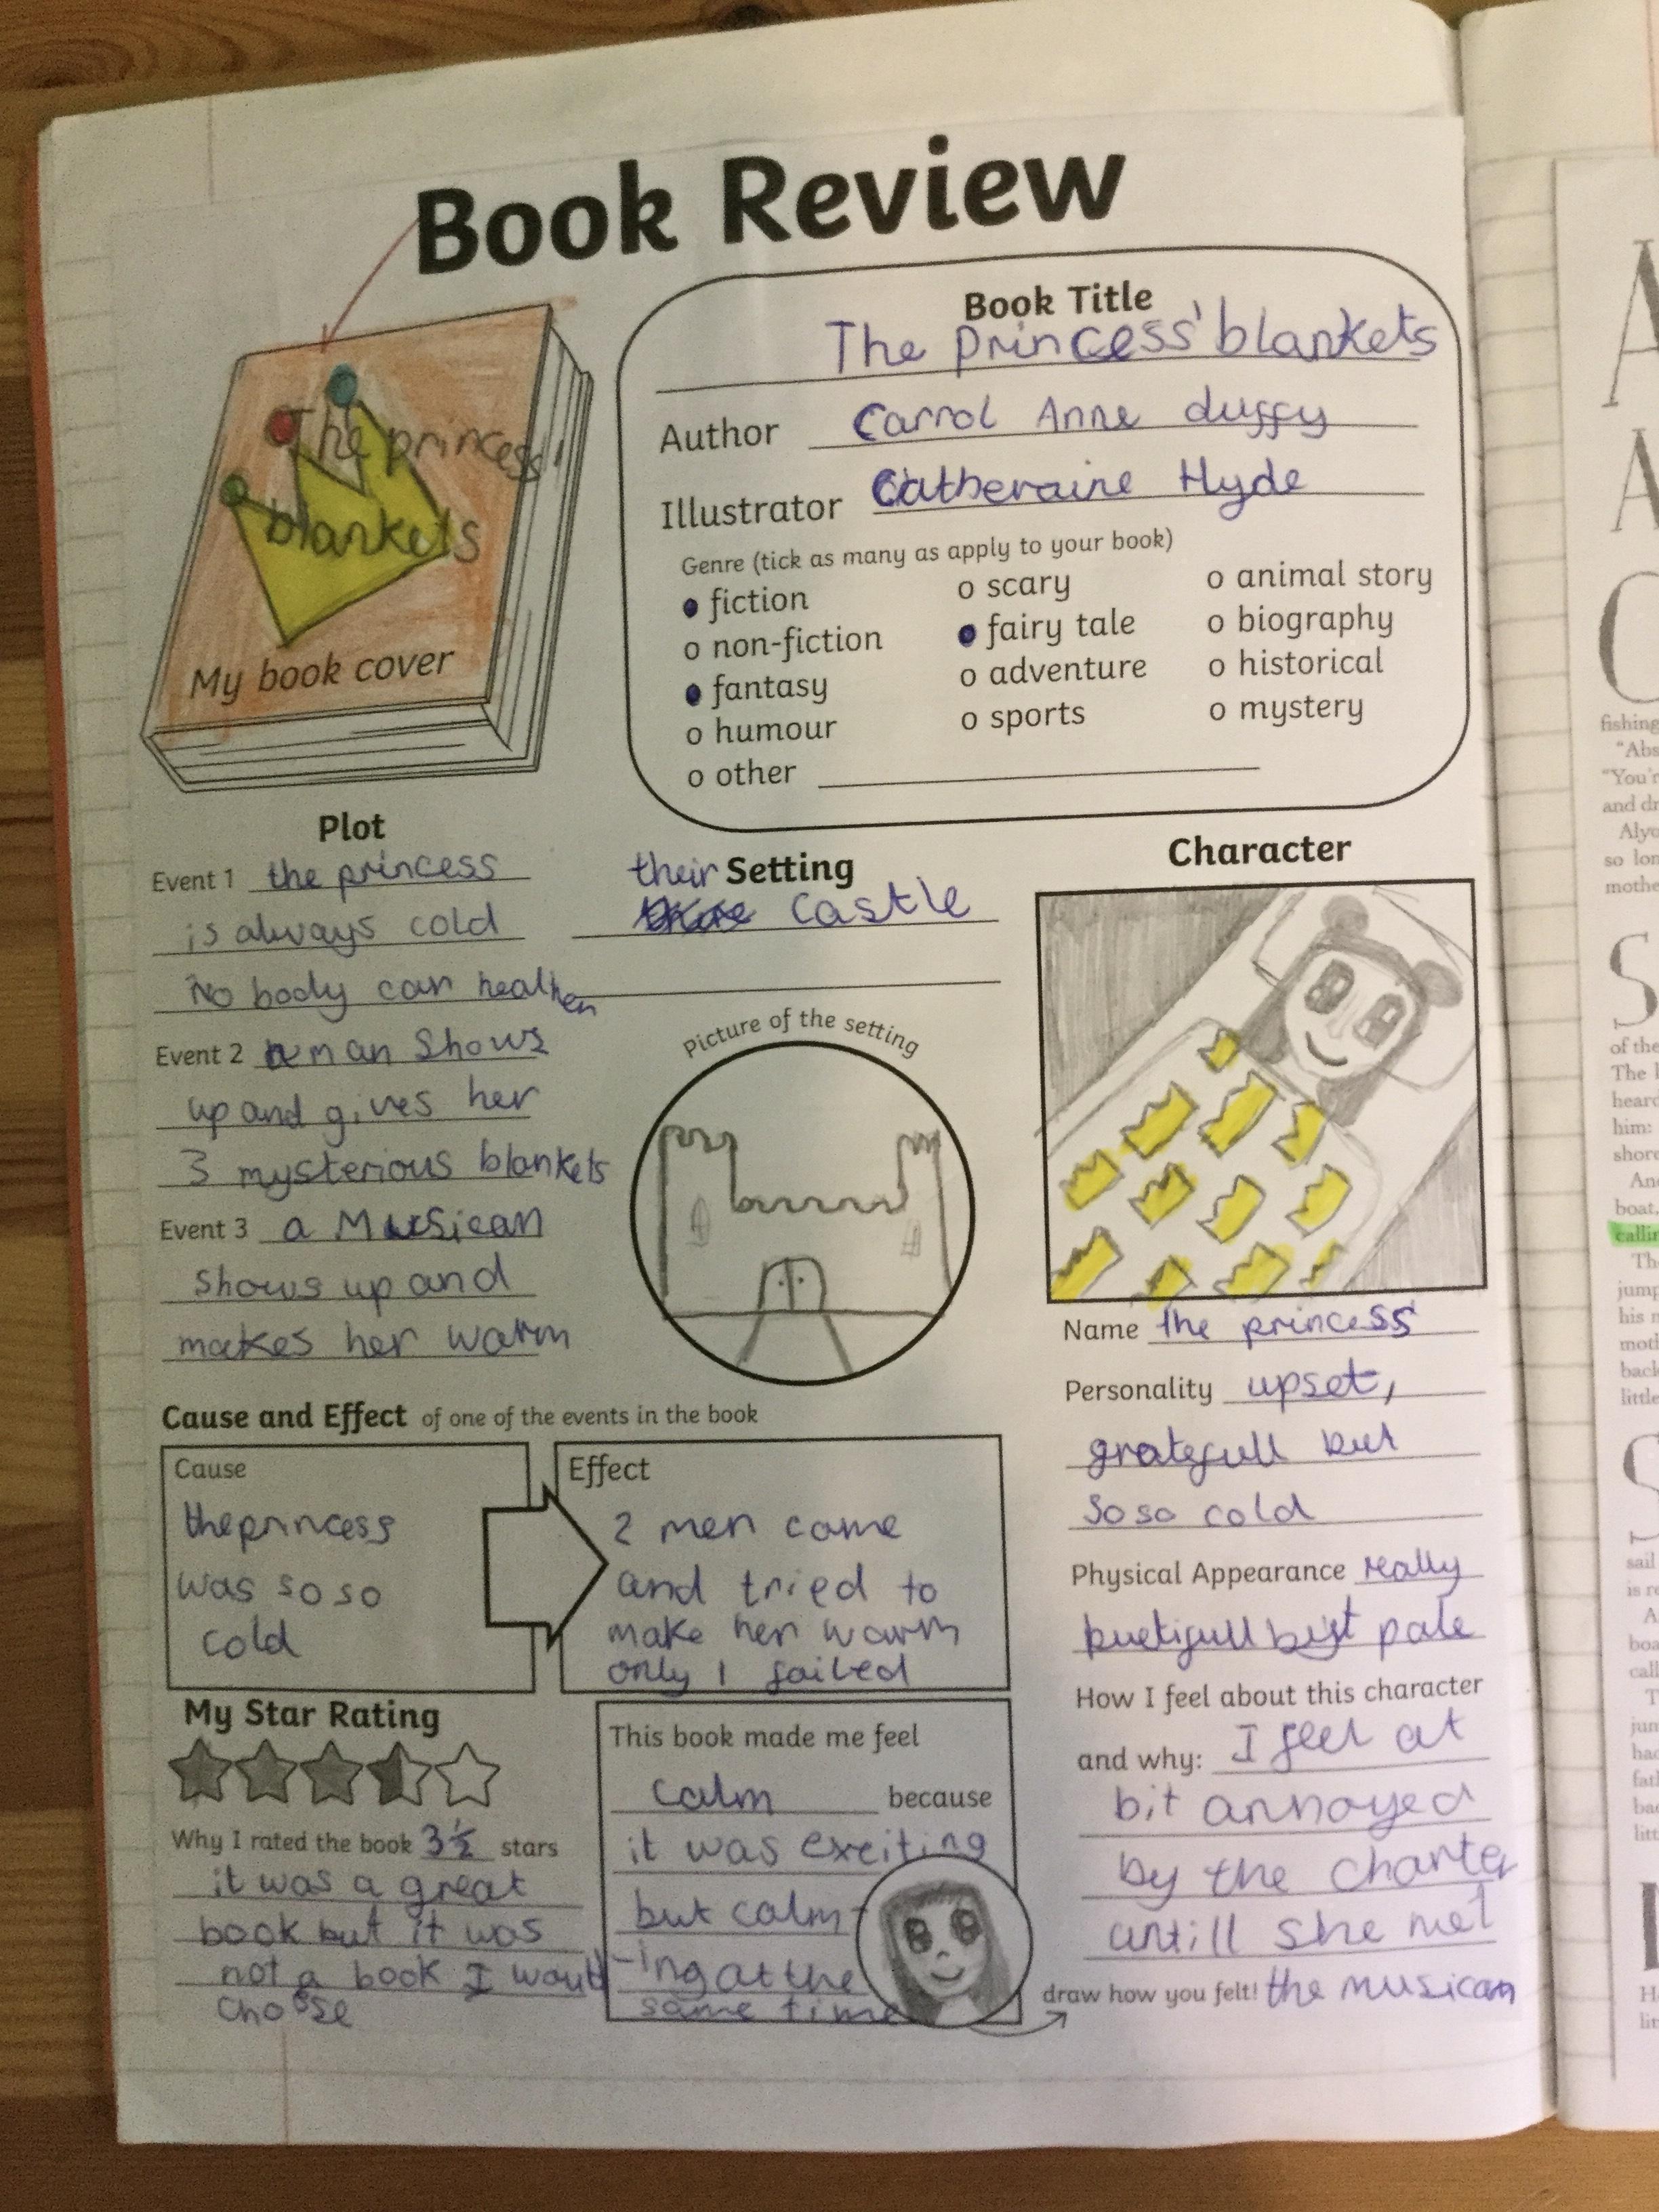 Book Review
The princess'
blankets
My book cover
Book Title
The princess' blankets
Author Carrol Anne duffy
Illustrator Catheraine Hyde
Genre (tick as many as apply to your book)
fiction
o non-fiction
fantasy
o humour
o other
o scary
fairy tale
o adventure
o sports
o animal story
o biography
o historical
o mystery
Plot
Event 1 the princess
is always cold
No body can heal her
Event 2 a man shows
up and gives her
3 mysterious blankets
Event 3 a Musican
shows up and
makes her warm
Setting
their
castle
Picture of the setting
Character
Name the princess
Personality upset,
gratefull but
so so cold
Physical Appearance really
buetifull but pale
How I feel about this character
and why: I feel at
bit annoyed
by the charter
untill she met
the musican
Cause and Effect of one of the events in the book
Cause
the princess
was so so
cold
Effect
2 men came
and tried to
make her warm
only 1 failed
My Star Rating
Why I rated the book 3½ stars
it was a great
book but it was
not a book I would
choose
This book made me feel
calm because
it was exciting
but calm-
-ing at the
same time
draw how you felt!
A
A
C
fishing
"Abs
"You'r
and dr
Alyo
so lon
mothe
S
of the
The l
heard
him:
shore
And
boat,
callin
The
jump
his n
moth
back
little
S
sail
is re
A
boa
call
T
jun
had
fath
bac
litt
H
lin